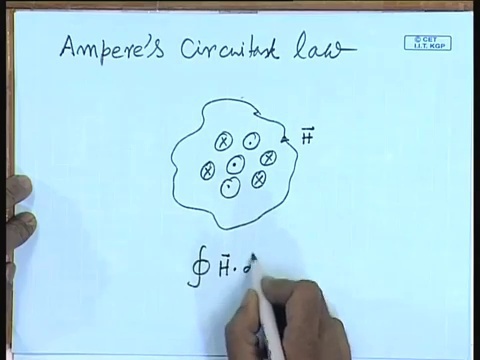 Ampere's Circuital law
© CET
I.I.T. KGP
H⃗
∮ H⃗ · d